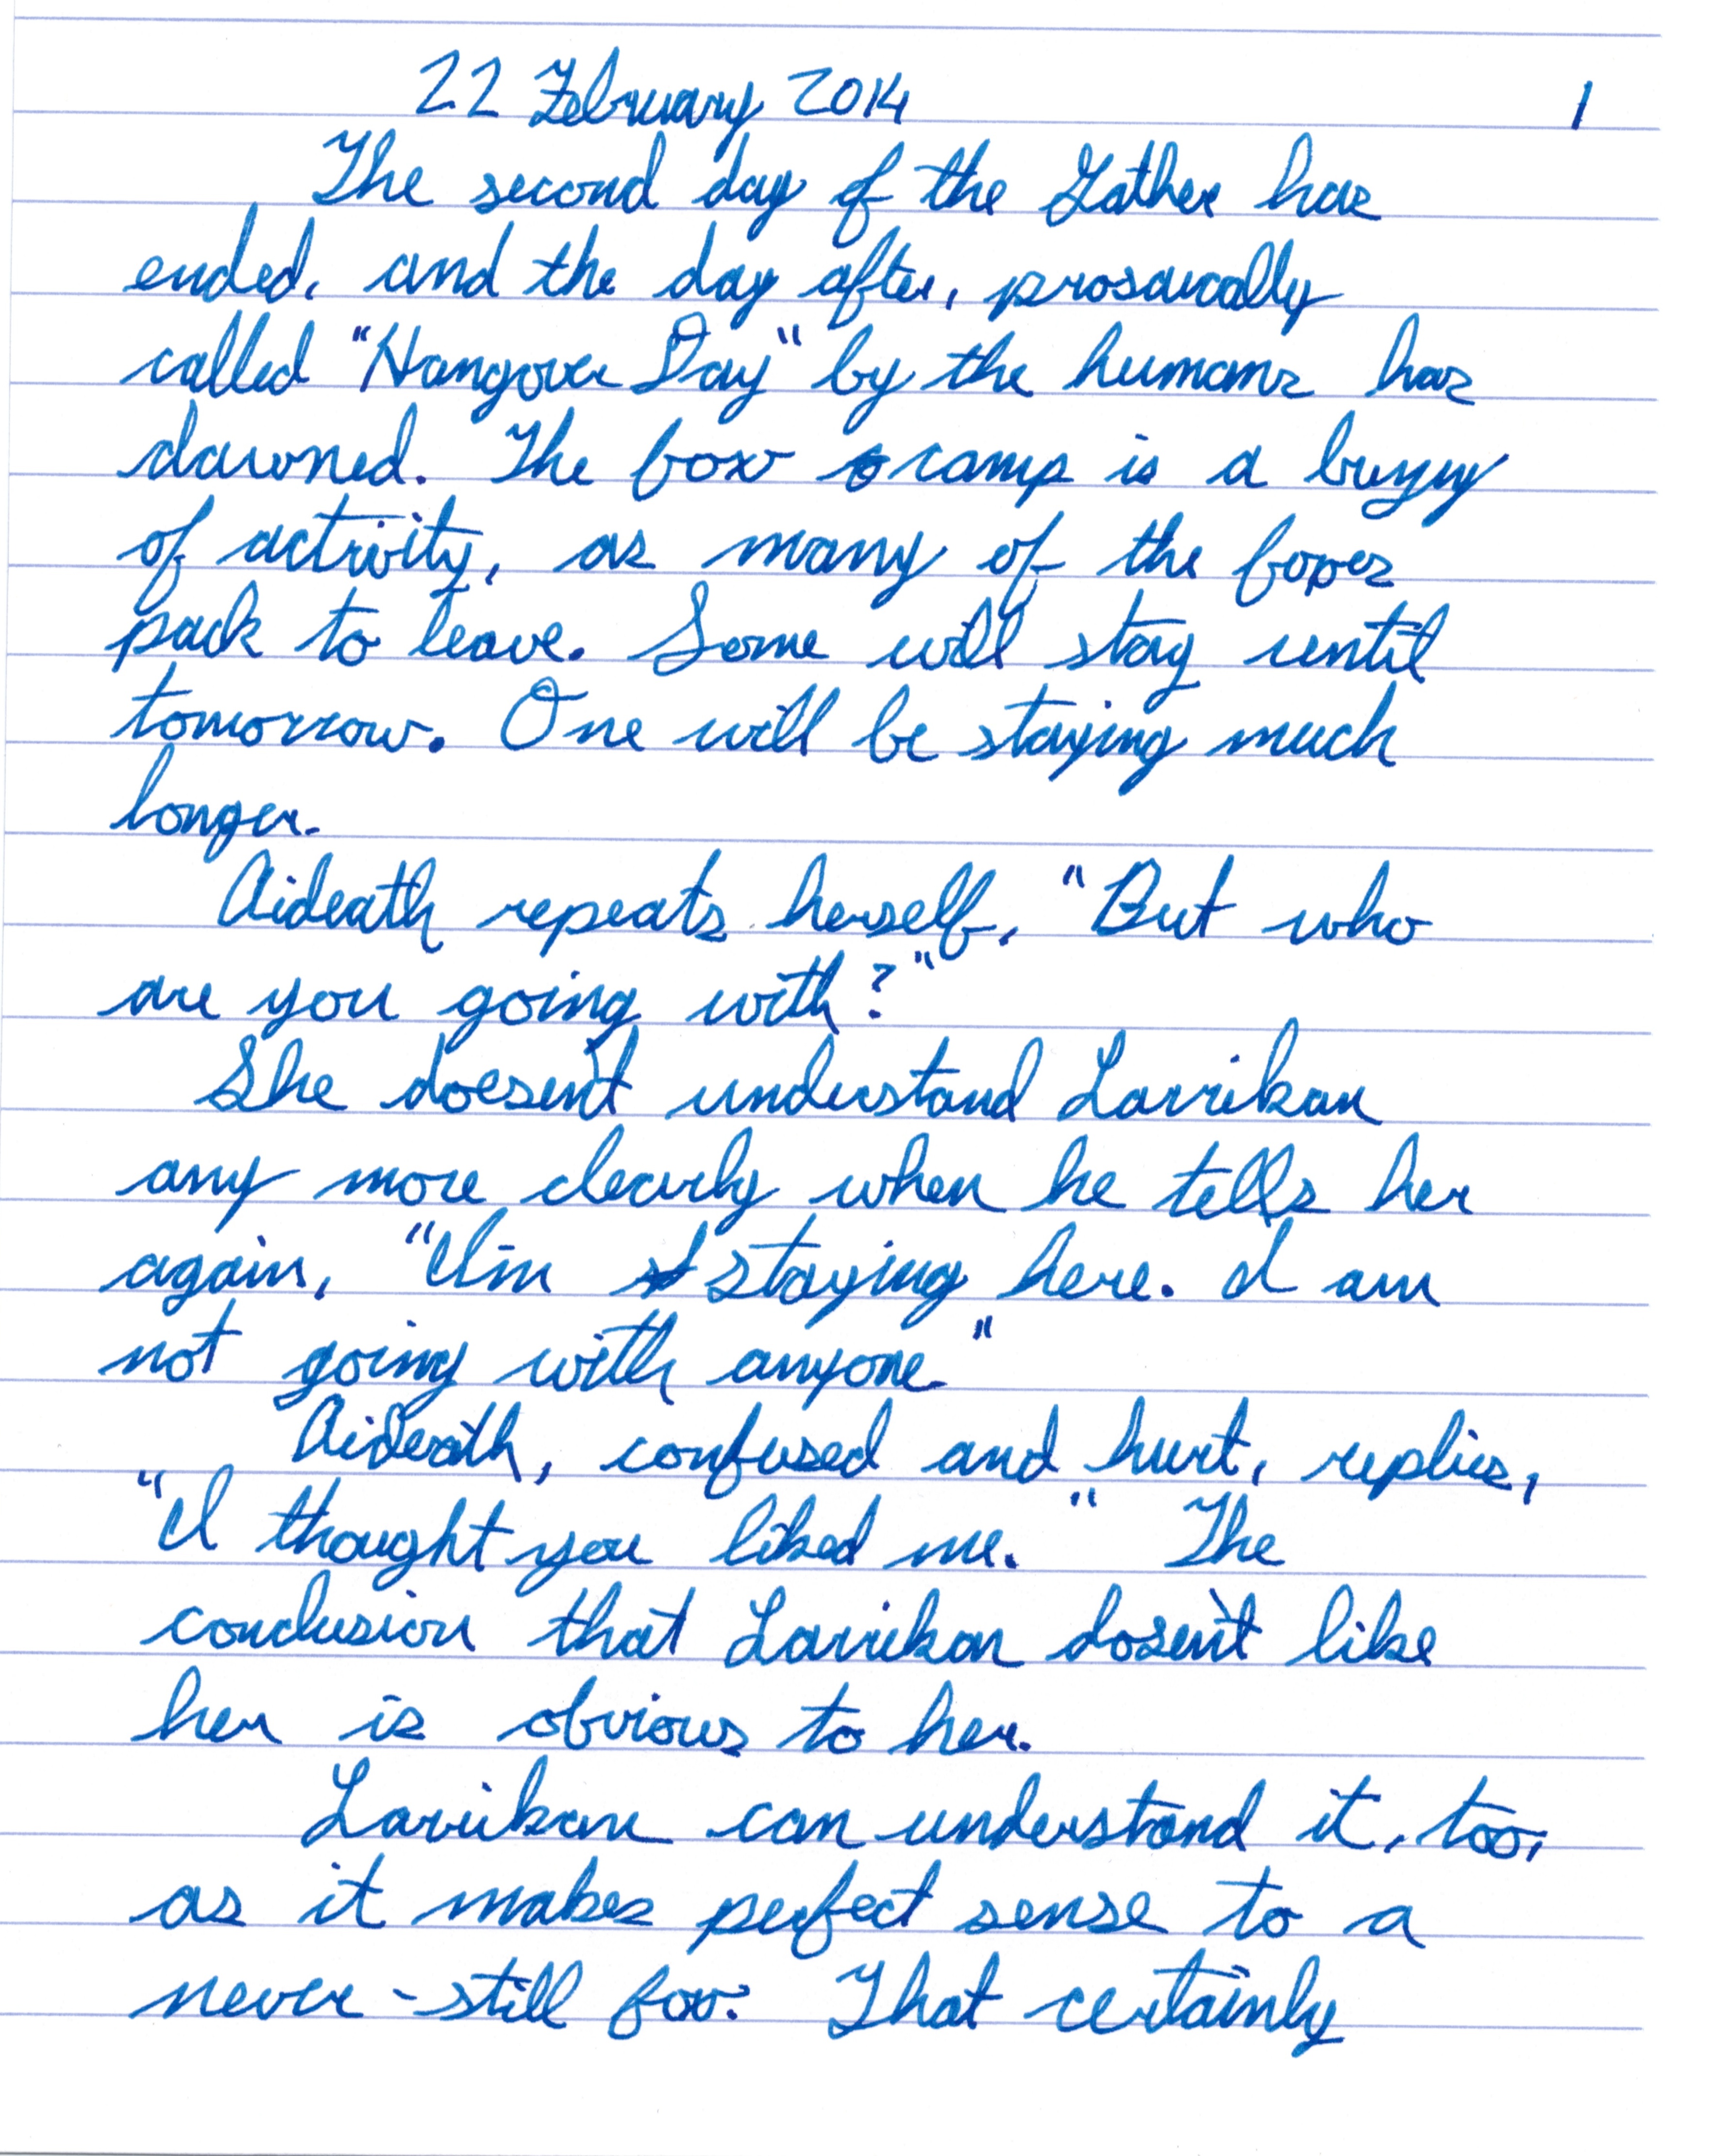 22 February 2014 1
The second day of the Gather has
ended, and the day after, prosaically
called "Hangover Day" by the humans has
dawned. The fox camp is a buzzy
of activity, as many of the foxes
pack to leave. Some will stay until
tomorrow. One will be staying much
longer.
Aideath repeats herself, "But who
are you going with?"
She doesen't understand Larrikan
any more clearly when he tells her
again, "I'm staying here. I am
not going with anyone."
Aideath, confused and hurt, replies,
"I thought you liked me." The
conclusion that Larrikan dosen't like
her is obvious to her.
Larrikan can understand it, too,
as it makes perfect sense to a
never-still fox. That certainly